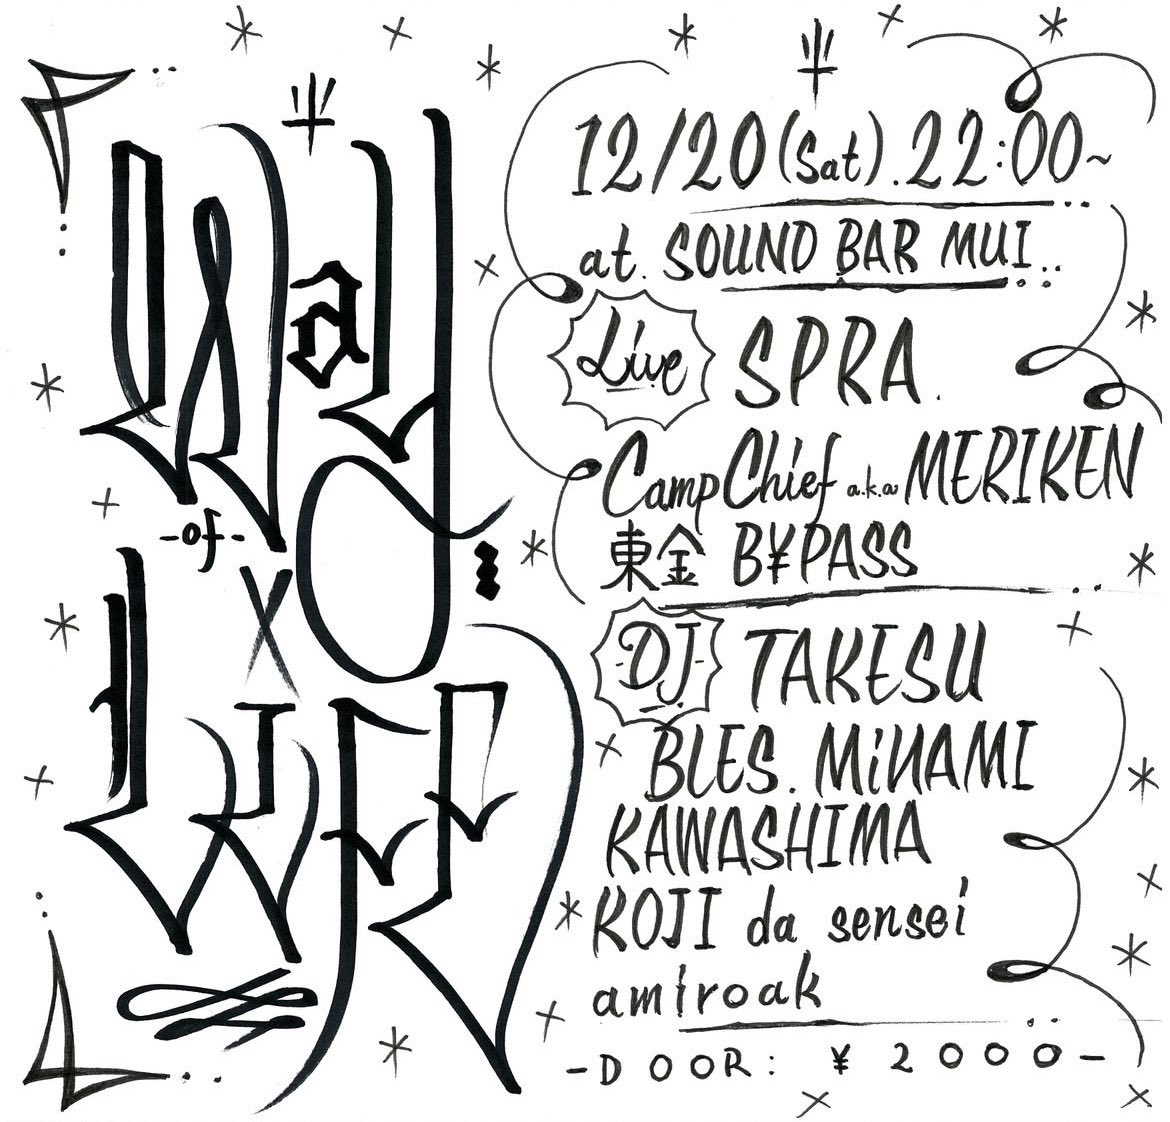 Way
-of-
Life
12/20(Sat).22:00~
at. SOUND BAR MUI..
Live SPRA.
Camp Chief a.k.a MERIKEN
東金 B¥PASS
-DJ- TAKESU
BLES. MiNAMI
KAWASHIMA
KOJI da sensei
amiroak
-DOOR: ¥2000-